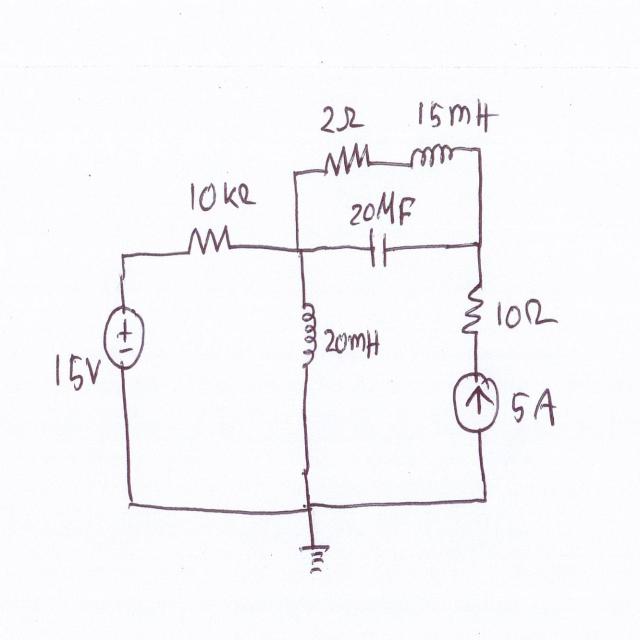 2Ω
15mH
10kΩ
20MF
10Ω
20mH
15V
5A